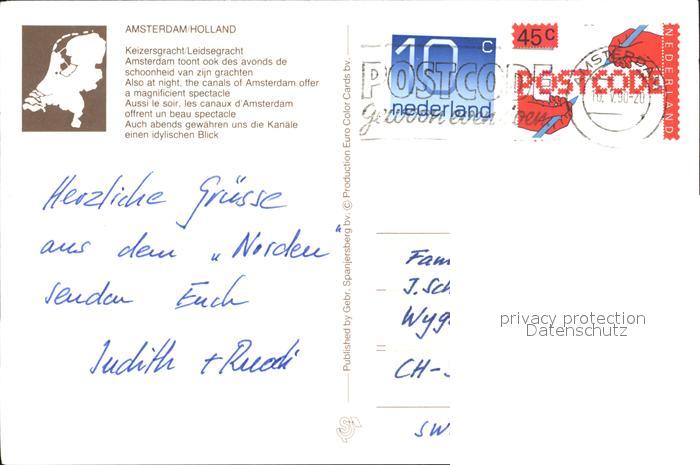 AMSTERDAM/HOLLAND
Keizersgracht/Leidsegracht
Amsterdam toont ook des avonds de
schoonheid van zijn grachten
Also at night, the canals of Amsterdam offer
a magnificent spectacle
Aussi le soir, les canaux d'Amsterdam
offrent un beau spectacle
Auch abends gewähren uns die Kanäle
einen idylischen Blick
Herzliche Grüsse
aus dem „Norden"
senden Euch
Judith + Ruedi
Published by Gebr. Spanjersberg bv. © Production Euro Color Cards bv.
10 c
nederland
45 c
POSTCODE
NEDERLAND
POSTCODE
gewoon even doen
AMSTERDAM
Fam
J. Sch
Wyg
CH-
SW
privacy protection
Datenschutz